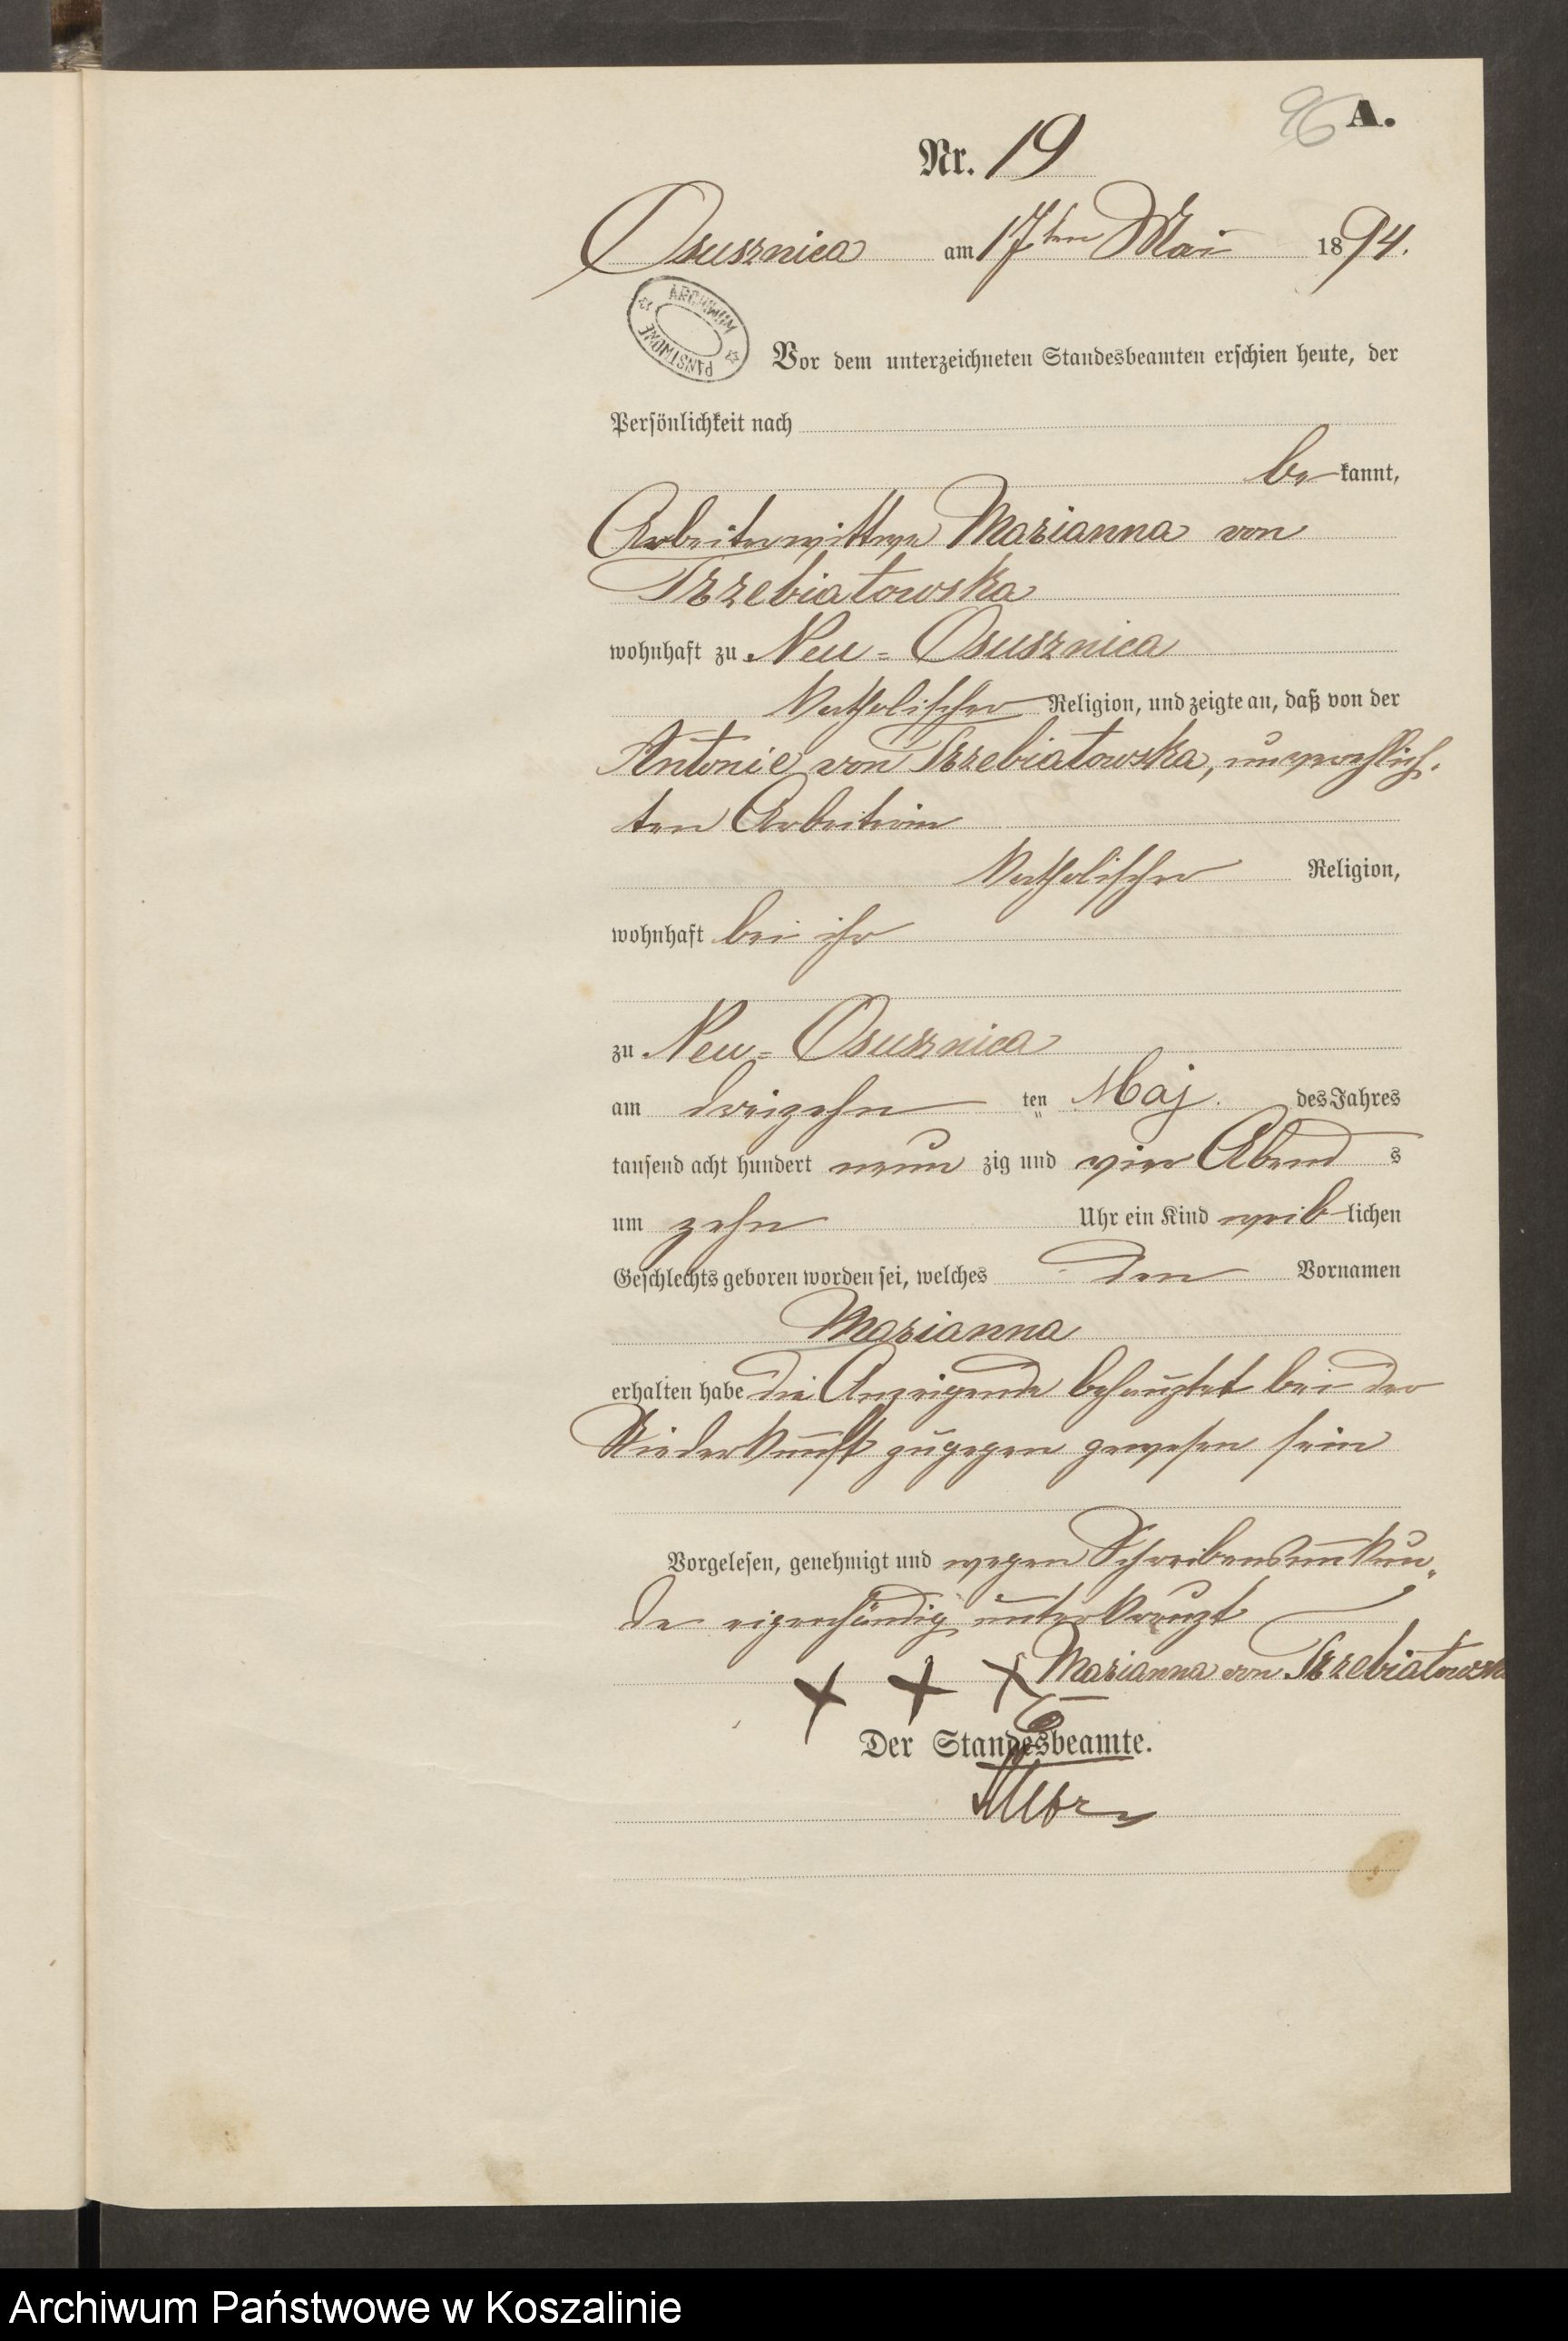 96 A.
Nr. 19
Osusznica am 17ten Mai 1894.
ARCHIWUM PAŃSTWOWE
Vor dem unterzeichneten Standesbeamten erschien heute, der
Persönlichkeit nach
be kannt,
Arbeiterwittwe Marianna von
Trzebiatowska
wohnhaft zu Neu-Osusznica
katholischer Religion, und zeigte an, daß von der
Antonie von Trzebiatowska, unverehlich-
ten Arbeiterin
katholischer Religion,
wohnhaft bei ihr
zu Neu-Osusznica
am dreizehn ten Maj. des Jahres
tausend acht hundert neun zig und vier Abend s
um zehn Uhr ein Kind weib lichen
Geschlechts geboren worden sei, welches den Vornamen
Marianna
erhalten habe die Anzeigende behauptet bei der
Niederkunft zugegen gewesen sein
Vorgelesen, genehmigt und wegen Schreibensunkun-
de eigenhändig unterkreuzt
+ + + Marianna von Trzebiatowska
Der Standesbeamte.
Archiwum Państwowe w Koszalinie